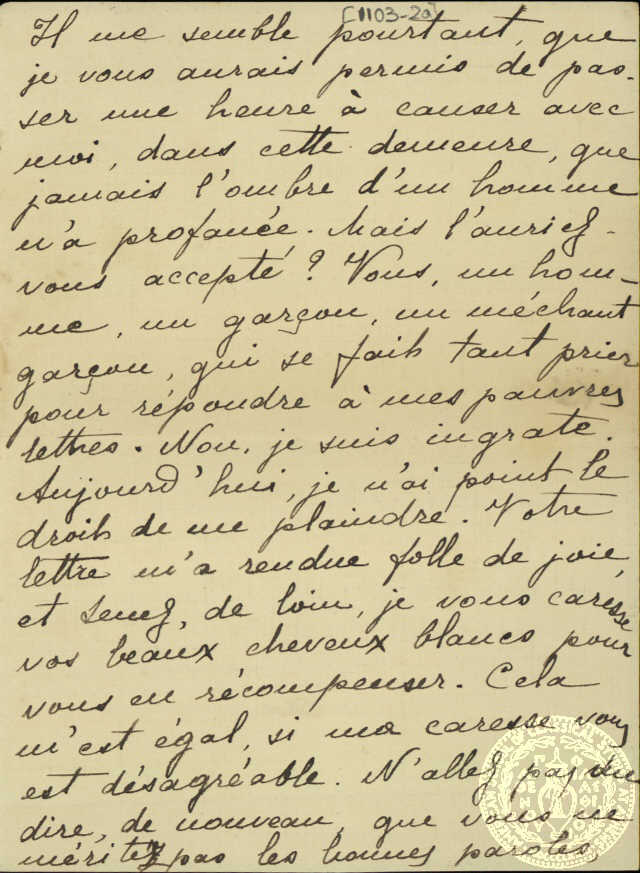 [1103-20]
Il me semble pourtant, que
je vous aurais permis de pas-
ser une heure à causer avec
moi, dans cette demeure, que
jamais l'ombre d'un homme
n'a profanée. Mais l'auriez-
vous accepté? Vous, un hom-
me, un garçon, un méchant
garçon, qui se fait tant prier
pour répondre à mes pauvres
lettres. Non, je suis ingrate.
Aujourd'hui, je n'ai point le
droit de me plaindre. Votre
lettre m'a rendue folle de joie
et tenez, de loin, je vous caresse
vos beaux cheveux blancs pour
vous en récompenser. Cela
m'est égal, si ma caresse vous
est désagréable. N'allez pas
dire, de nouveau, que vous ne
méritez pas les bonnes paroles